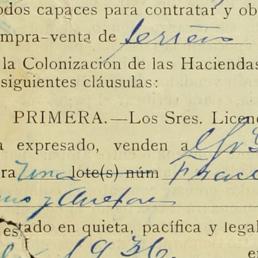 odos capaces para contratar y ob
mpra-venta de terreno
la Colonización de las Haciendas
siguientes cláusulas:
PRIMERA.—Los Sres. Licen
a expresado, venden al
ra una lote(s) núm Fracc
y Anexas
estado en quieta, pacífica y legal
es
de 1936